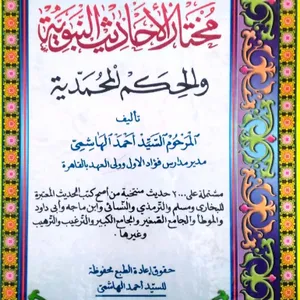 مختار الأحاديث النبوية
والحكم المحمدية
تأليف
المرحوم السيد أحمد الهاشمي
مدير مدارس فؤاد الاول وولي العهد بالقاهرة
مشتملة على ٢٠٠٠ حديث منتخبة من أصح كتب الحديث المعتبرة
للبخاري ومسلم والترمذي والنسائي وابن ماجه وأبي داود
والموطأ والجامع الصغير والجامع الكبير والترغيب والترهيب
وغيرها.
حقوق إعادة الطبع محفوظة
للسيد أحمد الهاشمي